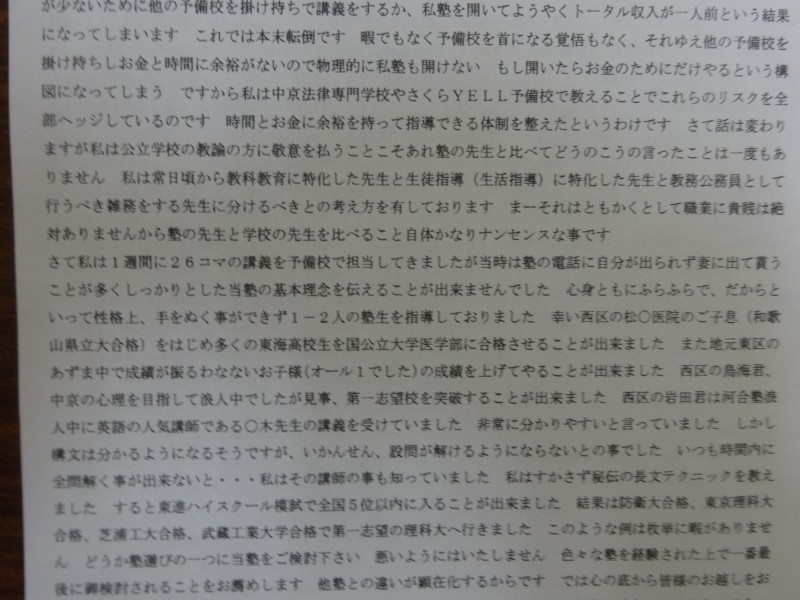 が少ないために他の予備校を掛け持ちで講義をするか、私塾を開いてようやくトータル収入が一人前という結果
になってしまいます　これでは本末転倒です　暇でもなく予備校を首になる覚悟もなく、それゆえ他の予備校を
掛け持ちしお金と時間に余裕がないので物理的に私塾も開けない　もし開いたらお金のためにだけやるという構
図になってしまう　ですから私は中京法律専門学校やさくらＹＥＬＬ予備校で教えることでこれらのリスクを全
部ヘッジしているのです　時間とお金に余裕を持って指導できる体制を整えたというわけです　さて話は変わり
ますが私は公立学校の教諭の方に敬意を払うことこそあれ塾の先生と比べてどうのこうの言ったことは一度もあ
りません　私は常日頃から教科教育に特化した先生と生徒指導（生活指導）に特化した先生と教務公務員として
行うべき雑務をする先生に分けるべきとの考え方を有しております　まーそれはともかくとして職業に貴賎は絶
対ありませんから塾の先生と学校の先生を比べること自体かなりナンセンスな事です
さて私は１週間に２６コマの講義を予備校で担当してきましたが当時は塾の電話に自分が出られず妻に出て貰う
ことが多くしっかりとした当塾の基本理念を伝えることが出来ませんでした　心身ともにふらふらで、だからと
いって性格上、手をぬく事ができず１－２人の塾生を指導しておりました　幸い西区の松〇医院のご子息（和歌
山県立大合格）をはじめ多くの東海高校生を国公立大学医学部に合格させることが出来ました　また地元東区の
あずま中で成績が振るわなないお子様（オール１でした）の成績を上げてやることが出来ました　西区の鳥海君、
中京の心理を目指して浪人中でしたが見事、第一志望校を突破することが出来ました　西区の岩田君は河合塾浪
人中に英語の人気講師である〇木先生の講義を受けていました　非常に分かりやすいと言っていました　しかし
構文は分かるようになるそうですが、いかんせん、設問が解けるようにならないとの事でした　いつも時間内に
全問解く事が出来ないと・・・私はその講師の事も知っていました　私はすかさず秘伝の長文テクニックを教え
ました　すると東進ハイスクール模試で全国５位以内に入ることが出来ました　結果は防衛大合格、東京理科大
合格、芝浦工大合格、武蔵工業大学合格で第一志望の理科大へ行きました　このような例は枚挙に暇がありませ
ん　どうか塾選びの一つに当塾をご検討下さい　悪いようにはいたしません　色々な塾を経験された上で一番最
後に御検討されることをお薦めします　他塾との違いが顕在化するからです　では心の底から皆様のお越しをお